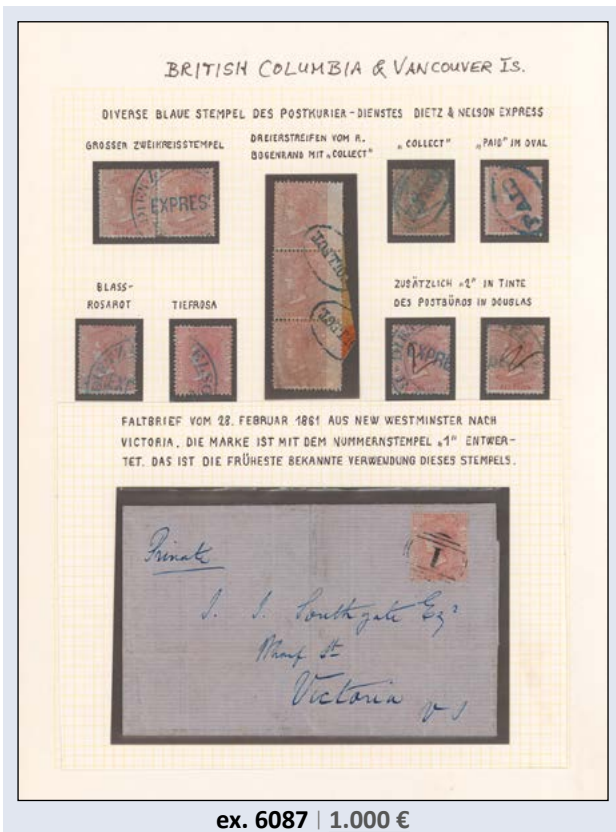 BRITISH COLUMBIA & VANCOUVER IS.
DIVERSE BLAUE STEMPEL DES POSTKURIER-DIENSTES DIETZ & NELSON EXPRESS
GROSSER ZWEIKREISSTEMPEL
DREIERSTREIFEN VOM R.
BOGENRAND MIT „COLLECT"
„COLLECT"
„PAID" IM OVAL
EXPRES
PAID
BLASS-
ROSAROT
TIEFROSA
ZUSÄTZLICH „2" IN TINTE
DES POSTBÜROS IN DOUGLAS
EXPRE
2
2
FALTBRIEF VOM 28. FEBRUAR 1861 AUS NEW WESTMINSTER NACH
VICTORIA. DIE MARKE IST MIT DEM NUMMERNSTEMPEL „1" ENTWER-
TET. DAS IST DIE FRÜHESTE BEKANNTE VERWENDUNG DIESES STEMPELS.
1
Private
J. J. Southgate Esqr
Wharf St
Victoria
V I
ex. 6087 | 1.000 €